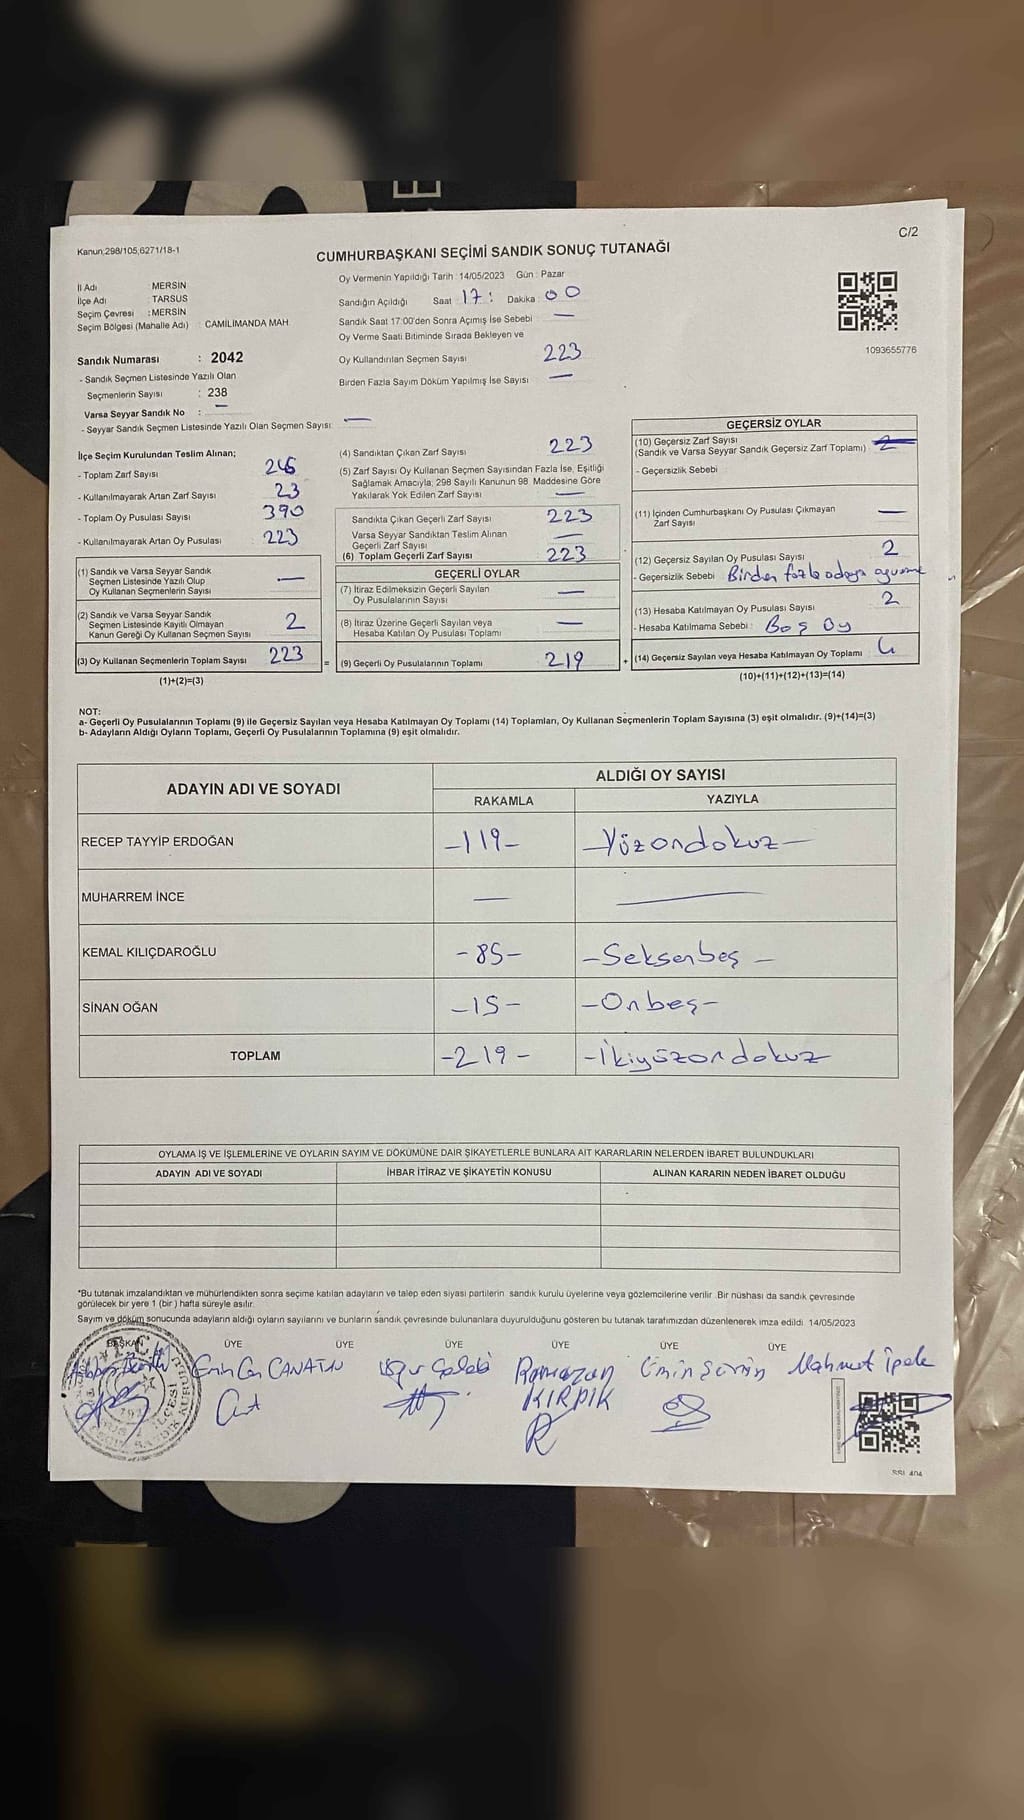 C/2
Kanun;298/105,6271/18-1
CUMHURBAŞKANI SEÇİMİ SANDIK SONUÇ TUTANAĞI
İl Adı : MERSİN
İlçe Adı : TARSUS
Seçim Çevresi : MERSİN
Seçim Bölgesi (Mahalle Adı) : CAMİLİMANDA MAH.
Sandık Numarası : 2042
- Sandık Seçmen Listesinde Yazılı Olan
Seçmenlerin Sayısı : 238
Varsa Seyyar Sandık No : —
- Seyyar Sandık Seçmen Listesinde Yazılı Olan Seçmen Sayısı: —
Oy Vermenin Yapıldığı Tarih : 14/05/2023 Gün : Pazar
Sandığın Açıldığı Saat 17: Dakika : 00
Sandık Saat 17:00'den Sonra Açımış İse Sebebi —
Oy Verme Saati Bitiminde Sırada Bekleyen ve
Oy Kullandırılan Seçmen Sayısı 223
Birden Fazla Sayım Döküm Yapılmış İse Sayısı —
1093655776
İlçe Seçim Kurulundan Teslim Alınan;
- Toplam Zarf Sayısı 246
- Kullanılmayarak Artan Zarf Sayısı 23
- Toplam Oy Pusulası Sayısı 390
- Kullanılmayarak Artan Oy Pusulası 223
(1) Sandık ve Varsa Seyyar Sandık
Seçmen Listesinde Yazılı Olup
Oy Kullanan Seçmenlerin Sayısı —
(2) Sandık ve Varsa Seyyar Sandık
Seçmen Listesinde Kayıtlı Olmayan
Kanun Gereği Oy Kullanan Seçmen Sayısı 2
(3) Oy Kullanan Seçmenlerin Toplam Sayısı 223
(1)+(2)=(3)
(4) Sandıktan Çıkan Zarf Sayısı 223
(5) Zarf Sayısı Oy Kullanan Seçmen Sayısından Fazla İse, Eşitliği
Sağlamak Amacıyla, 298 Sayılı Kanunun 98. Maddesine Göre
Yakılarak Yok Edilen Zarf Sayısı —
Sandıkta Çıkan Geçerli Zarf Sayısı 223
Varsa Seyyar Sandıktan Teslim Alınan
Geçerli Zarf Sayısı —
(6) Toplam Geçerli Zarf Sayısı 223
GEÇERLİ OYLAR
(7) İtiraz Edilmeksizin Geçerli Sayılan
Oy Pusulalarının Sayısı —
(8) İtiraz Üzerine Geçerli Sayılan veya
Hesaba Katılan Oy Pusulası Toplamı —
= (9) Geçerli Oy Pusulalarının Toplamı 219
GEÇERSİZ OYLAR
(10) Geçersiz Zarf Sayısı
(Sandık ve Varsa Seyyar Sandık Geçersiz Zarf Toplamı) 2
- Geçersizlik Sebebi :
(11) İçinden Cumhurbaşkanı Oy Pusulası Çıkmayan
Zarf Sayısı —
(12) Geçersiz Sayılan Oy Pusulası Sayısı 2
- Geçersizlik Sebebi : Birden fazla adaya
(13) Hesaba Katılmayan Oy Pusulası Sayısı 2
- Hesaba Katılmama Sebebi : Boş Oy
+ (14) Geçersiz Sayılan veya Hesaba Katılmayan Oy Toplamı 4
(10)+(11)+(12)+(13)=(14)
NOT:
a- Geçerli Oy Pusulalarının Toplamı (9) ile Geçersiz Sayılan veya Hesaba Katılmayan Oy Toplamı (14) Toplamları, Oy Kullanan Seçmenlerin Toplam Sayısına (3) eşit olmalıdır. (9)+(14)=(3)
b- Adayların Aldığı Oyların Toplamı, Geçerli Oy Pusulalarının Toplamına (9) eşit olmalıdır.
ADAYIN ADI VE SOYADI ALDIĞI OY SAYISI
RAKAMLA YAZIYLA
RECEP TAYYİP ERDOĞAN -119- -Yüzondokuz-
MUHARREM İNCE — —
KEMAL KILIÇDAROĞLU -85- -Seksenbeş-
SİNAN OĞAN -15- -Onbeş-
TOPLAM -219- -İkiyüzondokuz
OYLAMA İŞ VE İŞLEMLERİNE VE OYLARIN SAYIM VE DÖKÜMÜNE DAİR ŞİKAYETLERLE BUNLARA AİT KARARLARIN NELERDEN İBARET BULUNDUKLARI
ADAYIN ADI VE SOYADI İHBAR İTİRAZ VE ŞİKAYETİN KONUSU ALINAN KARARIN NEDEN İBARET OLDUĞU
*Bu tutanak imzalandıktan ve mühürlendikten sonra seçime katılan adayların ve talep eden siyasi partilerin sandık kurulu üyelerine veya gözlemcilerine verilir. Bir nüshası da sandık çevresinde
görülecek bir yere 1 (bir) hafta süreyle asılır.
Sayım ve döküm sonucunda adayların aldığı oyların sayılarını ve bunların sandık çevresinde bulunanlara duyurulduğunu gösteren bu tutanak tarafımızdan düzenlenerek imza edildi. 14/05/2023
BAŞKAN ÜYE ÜYE ÜYE ÜYE ÜYE ÜYE
T.C.
CANATAN
Uğur
Ramazan
KIRPIK
Mahmut İpek
SSI 404